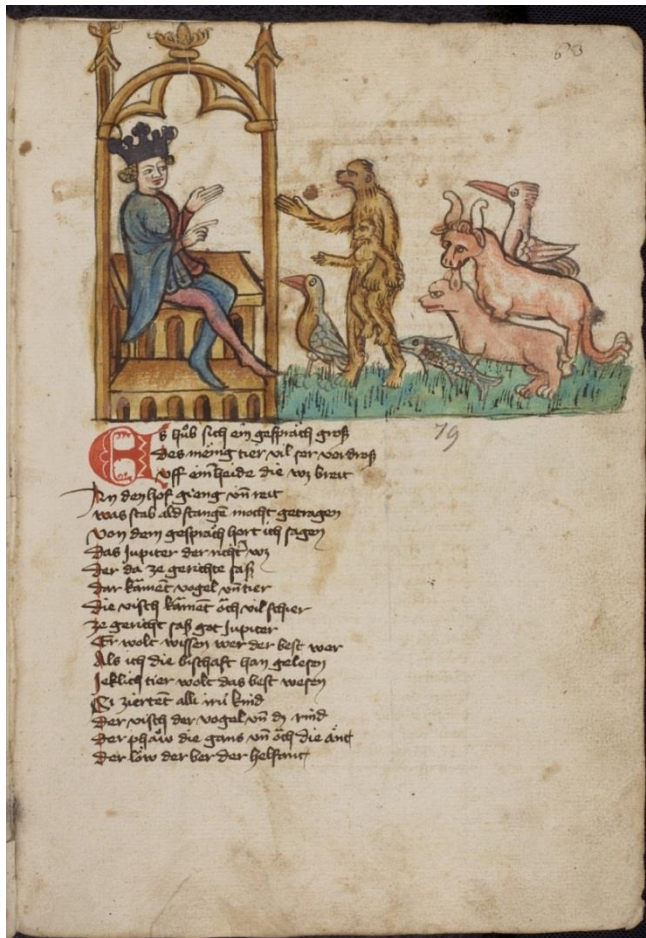 63
79
Es hůb sich ein gespräch groß
Des menig tier vil ser verdroß
Vff ein heide die wz breit
An den hof gieng vn̄ reit
was stab ald stange mocht getragen
Von dem gespräch hort ich sagen
Das Jupiter der richt wz
Der da ze gerichte saß
Dar kament vogel vn̄ tier
Die visch kament öch vil schier
Ze gericht saß got Jupiter
Er wolt wissen wer der best wer
Als ich die bischaft han gelesen
Jeklich tier wolt das best wesen
Si ziertent alli irū kind
Der visch der vogel vn̄ dz rind
Der phaw die gans vn̄ öch die ant
Der löw der ber der helfant